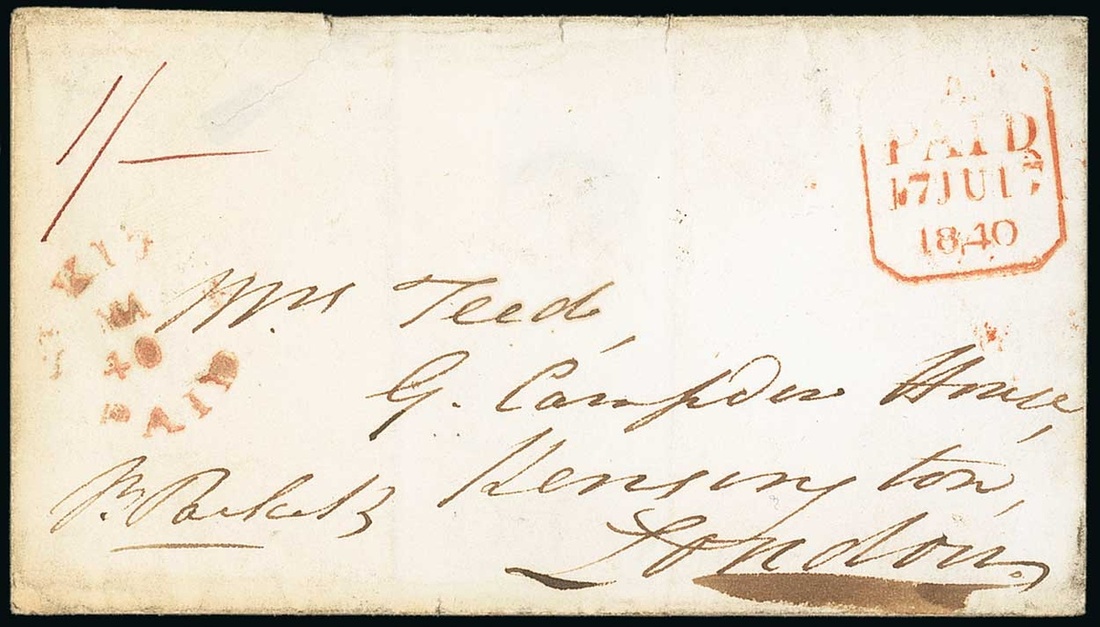 1/-
PAID
17 JU 17
1840
Mrs Teed,
G. Campden House,
Kensington,
London.
40
PAID
Pr. Packet